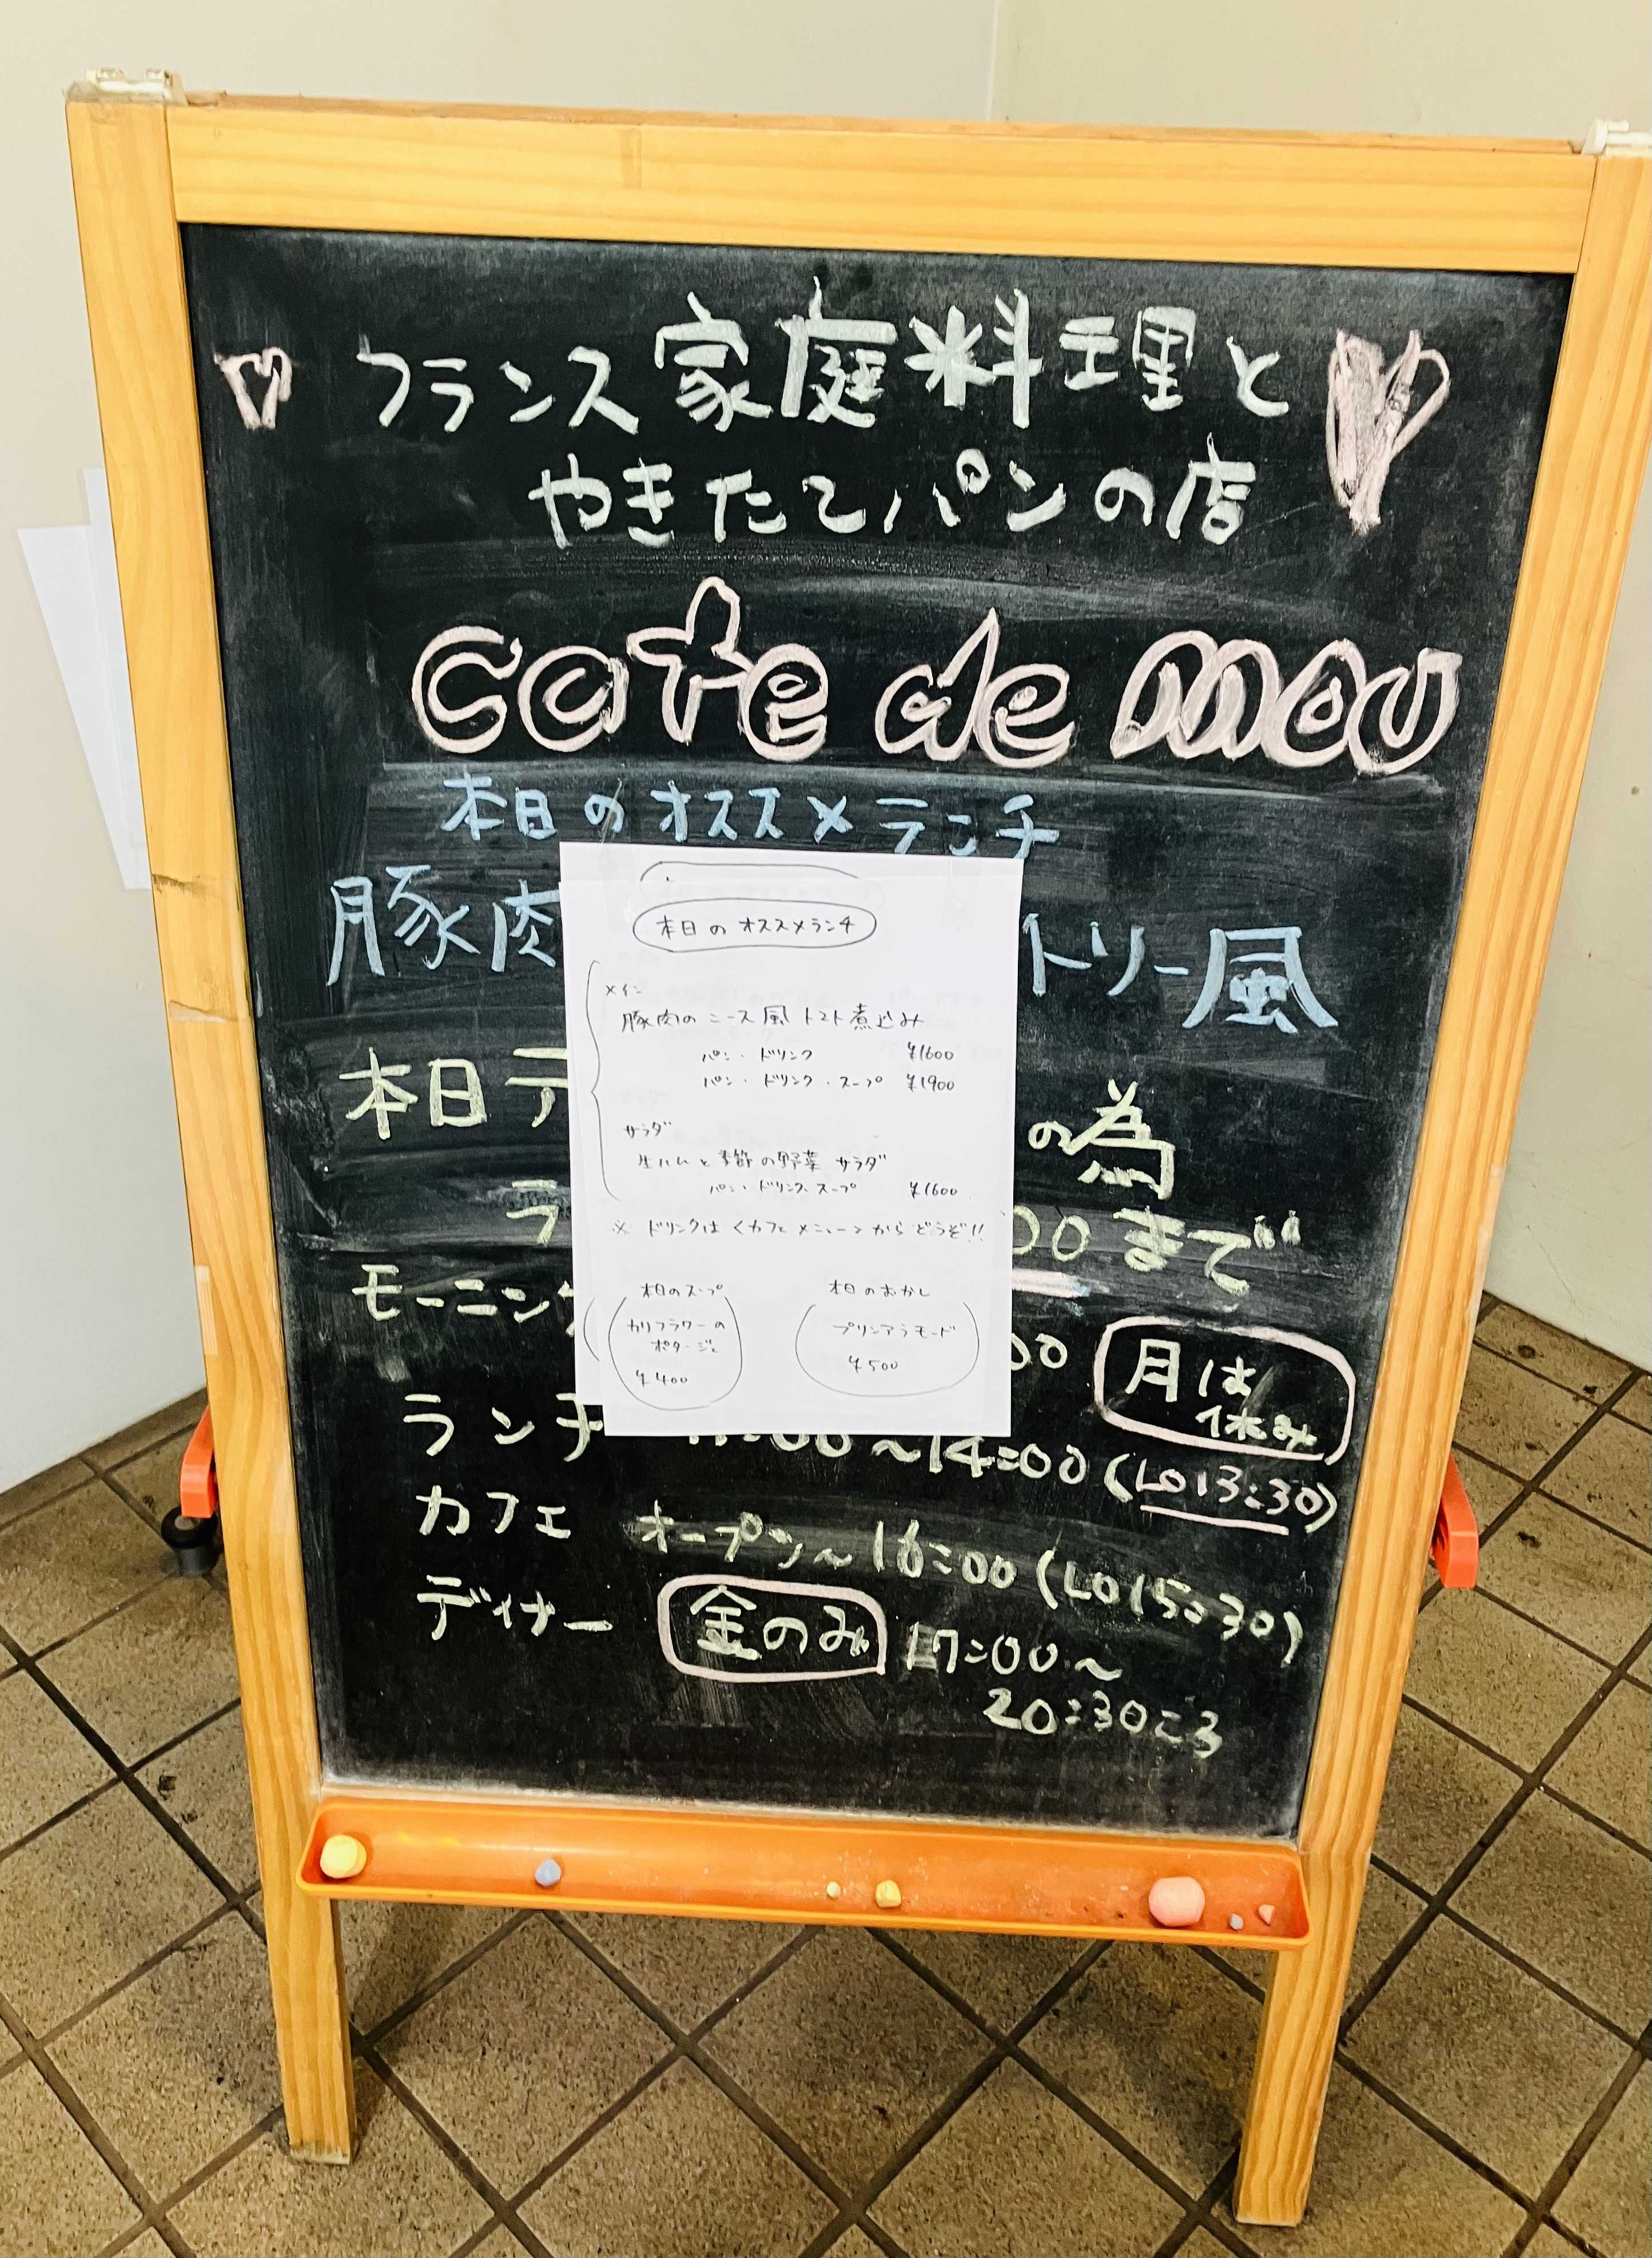 フランス家庭料理と
やきたてパンの店
cafe de mou
本日のオススメランチ
豚肉
トリー風
本日テ
の為
ラ
00まで
モーニング
00
月は
休み
ランチ 11:00~14:00(LO13:30)
カフェ オープン~16:00(LO15:30)
ディナー 金のみ 17:00~
20:30ころ
本日の オススメランチ
メイン
豚肉の ニース風 トマト煮込み
パン・ドリンク ¥1600
パン・ドリンク・スープ ¥1900
サラダ
生ハムと季節の野菜 サラダ
パン・ドリンク・スープ ¥1600
※ ドリンクは<カフェメニュー>から どうぞ!!
本日のスープ
カリフラワーの
ポタージュ
¥400
本日のおかし
プリンアラモード
¥500